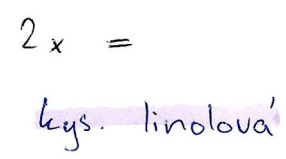 2x =
kys. linolová